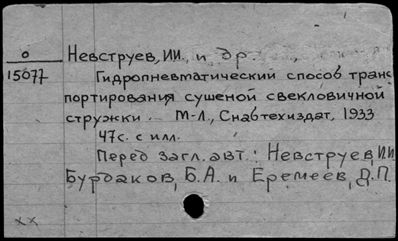 О
15077
Невструев, И.И., и др.
Гидропневматический способ транс
портирования сушеной свекловичной
стружки. М-Л., Снабтехиздат, 1933
47с. с илл.
Перед загл. авт.: Невструев И.И
Бурдаков, Б.А. и Еремеев, Д.П.
хх